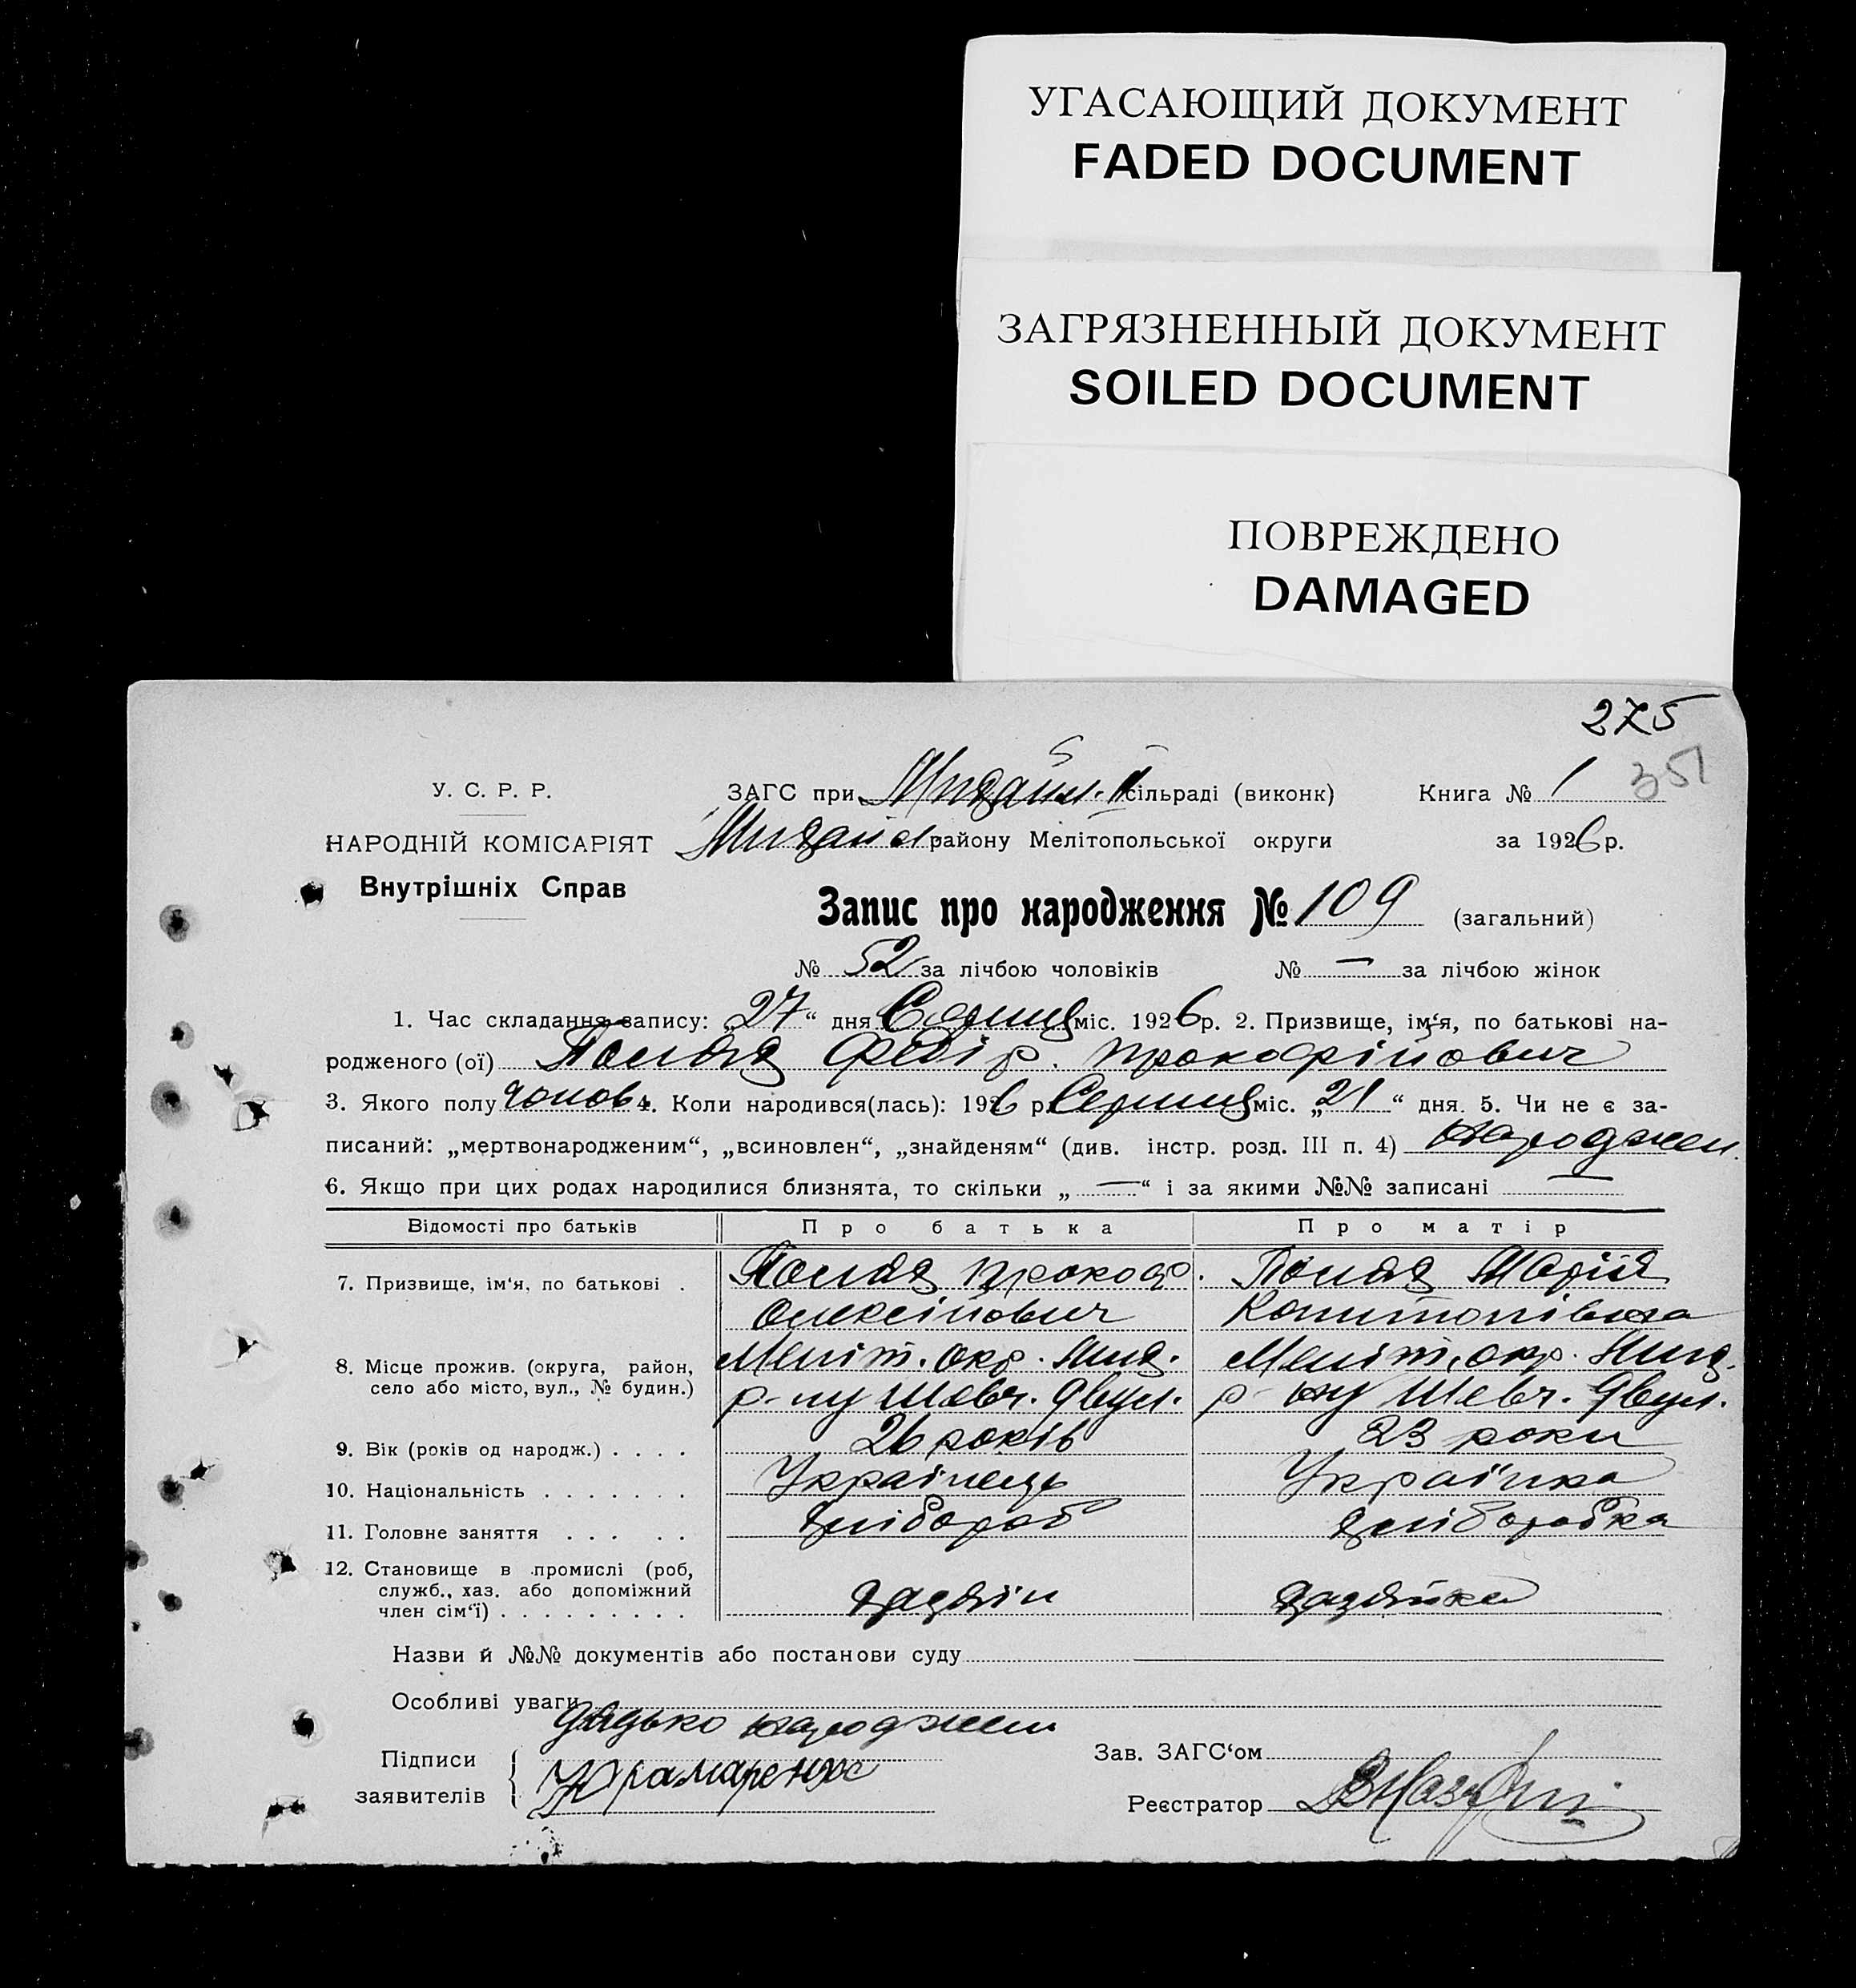 УГАСАЮЩИЙ ДОКУМЕНТ
FADED DOCUMENT
ЗАГРЯЗНЕННЫЙ ДОКУМЕНТ
SOILED DOCUMENT
ПОВРЕЖДЕНО
DAMAGED
275
351
У. С. Р. Р.
ЗАГС при Михайл. II сільраді (виконк) Книга № 1
НАРОДНІЙ КОМІСАРІЯТ
Михайл району Мелітопольської округи за 1926 р.
Внутрішніх Справ
Запис про народження № 109 (загальний)
№ 52 за лічбою чоловіків № — за лічбою жінок
1. Час складання запису: „27“ дня Серпня міс. 1926 р. 2. Призвище, ім‘я, по батькові на-
родженого (ої) Федір Прокофійович
3. Якого полу чолов 4. Коли народився(лась): 1926 р. Серпня міс. „21“ дня. 5. Чи не є за-
писаний: „мертвонародженим“, „всиновлен“, „знайденям“ (див. інстр. розд. III п. 4) народжен.
6. Якщо при цих родах народилися близнята, то скільки „—“ і за якими №№ записані —
Відомості про батьків Про батька Про матір
7. Призвище, ім‘я, по батькові . Прокоф. Марія
Олексійович
8. Місце прожив. (округа, район, Меліт. окр. Мих. Меліт. окр. Мих.
село або місто, вул., № будин.) р-ну Шевч. 9 вул. р-ну Шевч. 9 вул.
9. Вік (років од народж.) . . . . 26 років 23 роки
10. Національність . . . . . . . Українець Українка
11. Головне заняття . . . . . хлібороб хліборобка
12. Становище в промислі (роб,
служб., хаз. або допоміжний
член сім‘ї) . . . . . . . . . хазяїн хазяйка
Назви й №№ документів або постанови суду
Особливі уваги
дядько народжен
Підписи
заявителів
Крамаренко
Зав. ЗАГС‘ом
Реєстратор